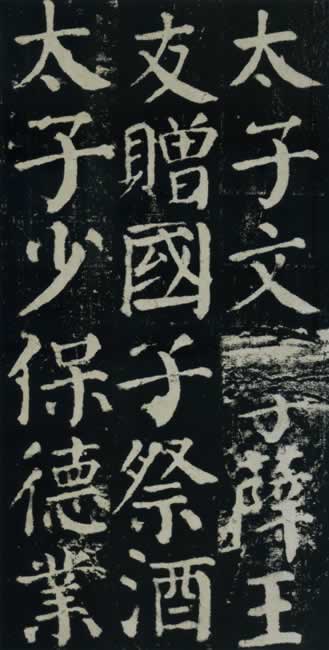 太子文薛王
友贈國子祭酒
太子少保德業